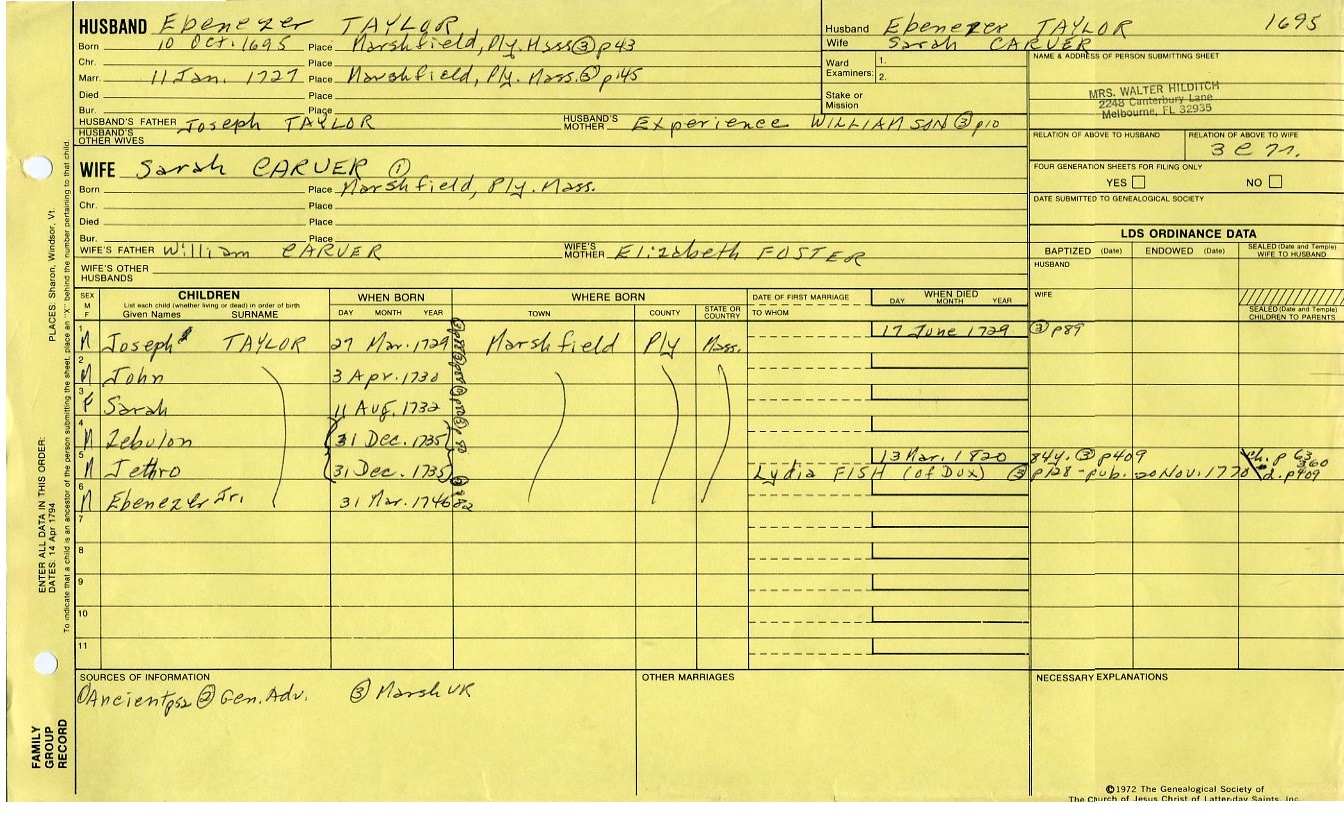 HUSBAND Ebenezer TAYLOR
Born 10 Oct. 1695 Place Marshfield, Ply. Mass ③ p43
Chr. Place
Marr. 11 Jan. 1727 Place Marshfield, Ply. Mass. ③ p145
Died Place
Bur. Place
HUSBAND'S FATHER Joseph TAYLOR HUSBAND'S MOTHER Experience WILLIAMSON ③ p10
HUSBAND'S OTHER WIVES
WIFE Sarah CARVER ①
Born Place Marshfield, Ply. Mass.
Chr. Place
Died Place
Bur. Place
WIFE'S FATHER William CARVER WIFE'S MOTHER Elizabeth FOSTER
WIFE'S OTHER HUSBANDS
Husband Ebenezer TAYLOR 1695
Wife Sarah CARVER
Ward Examiners: 1.
2.
Stake or Mission
NAME & ADDRESS OF PERSON SUBMITTING SHEET
MRS. WALTER HILDITCH
2248 Canterbury Lane
Melbourne, FL 32935
RELATION OF ABOVE TO HUSBAND RELATION OF ABOVE TO WIFE
3 C
FOUR GENERATION SHEETS FOR FILING ONLY
YES NO
DATE SUBMITTED TO GENEALOGICAL SOCIETY
LDS ORDINANCE DATA
BAPTIZED (Date) ENDOWED (Date) SEALED (Date and Temple) WIFE TO HUSBAND
HUSBAND
WIFE
SEALED (Date and Temple) CHILDREN TO PARENTS
SEX M F CHILDREN WHEN BORN WHERE BORN DATE OF FIRST MARRIAGE WHEN DIED
List each child (whether living or dead) in order of birth
Given Names SURNAME DAY MONTH YEAR TOWN COUNTY STATE OR COUNTRY TO WHOM DAY MONTH YEAR
1 M Joseph TAYLOR 27 Mar. 1729 Marshfield Ply Mass. 17 June 1729 ③ p89
2 M John 3 Apr. 1730
3 F Sarah 11 Aug. 1732
4 M Zebulon 31 Dec. 1735
5 M Jethro 31 Dec. 1735 13 Mar. 1820 84y. ③ p409
Lydia FISH (of Dux) ③ p128 - pub. 20 Nov. 1770 ch. p 63, 360 d. p409
6 M Ebenezer Jr. 31 Mar. 1746
7
8
9
10
11
SOURCES OF INFORMATION OTHER MARRIAGES NECESSARY EXPLANATIONS
① Ancient p52 ② Gen. Adv. ③ Marsh VR
©1972 The Genealogical Society of
The Church of Jesus Christ of Latter-day Saints, Inc.
PLACES: Sharon, Windsor, Vt.
ENTER ALL DATA IN THIS ORDER:
DATES: 14 Apr 1794
To indicate that a child is an ancestor of the person submitting the sheet, place an "X" behind the number pertaining to that child.
FAMILY
GROUP
RECORD